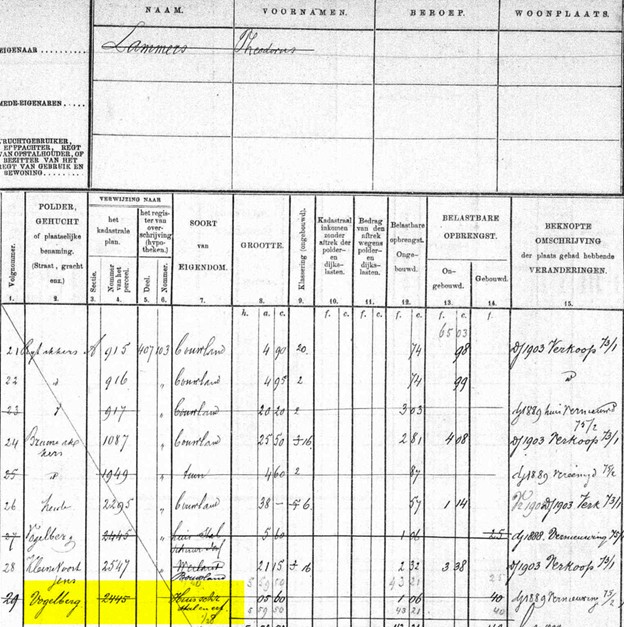 NAAM. VOORNAMEN. BEROEP. WOONPLAATS.
EIGENAAR Lammers Theodorus
MEDE-EIGENAREN
VRUCHTGEBRUIKER,
ERFPACHTER, REGT
VAN OPSTALHOUDER, OF
BEZITTER VAN HET
REGT VAN GEBRUIK EN
BEWONING
Volgnummer. POLDER, GEHUCHT of plaatselijke benaming. (Straat, gracht enz.) VERWIJZING NAAR het kadastrale plan. Sectie. Nummer van het perceel. het register van overschrijving (hypotheken.) Deel. Nommer. SOORT van EIGENDOM. GROOTTE. Klassering (ongebouwd). Kadastraal inkomen zonder aftrek der polder- en dijkslasten. Bedrag van den aftrek wegens polder- en dijkslasten. Belastbare opbrengst. Ongebouwd. BELASTBARE OPBRENGST. Ongebouwd. Gebouwd. BEKNOPTE OMSCHRIJVING der plaats gehad hebbende VERANDERINGEN.
1. 2. 3. 4. 5. 6. 7. 8. 9. 10. 11. 12. 13. 14. 15.
h. a. c. f. c. f. c. f. c. f. c. f.
65 03
21 915 407 103 Bouwland 4 90 20 74 98 dj 1903 Verkoop 73/1
22 " 916 " Bouwland 4 95 2 74 99 "
23 " 917 " Bouwland 20 20 2 3 03 dj 1889 Vernieuwd
75/2
24 1087 " Bouwland 25 50 16 2 81 4 08 dj 1903 Verkoop 73/1
25 " 1949 " tuin 4 60 2 87 dj 1889 vereenigd 75/2
26 Heide 2295 " Bouwland 38 - 6 57 1 14 dj 1903 Verk 73/1
27 Vogelberg 2445 " huis stal schuur erf 5 60 1 06 25 dj 1888. Vernieuwing
28 Kleine Voort 2547 " Bouwland 21 15 16 2 32 3 38 dj 1903 Verkoop 73/1
5 59 50 93 21 25
29 Vogelberg 2445 05 60 1 06 40 dj 1889 Vernieuwing 75/2
5 59 50 93 21 40